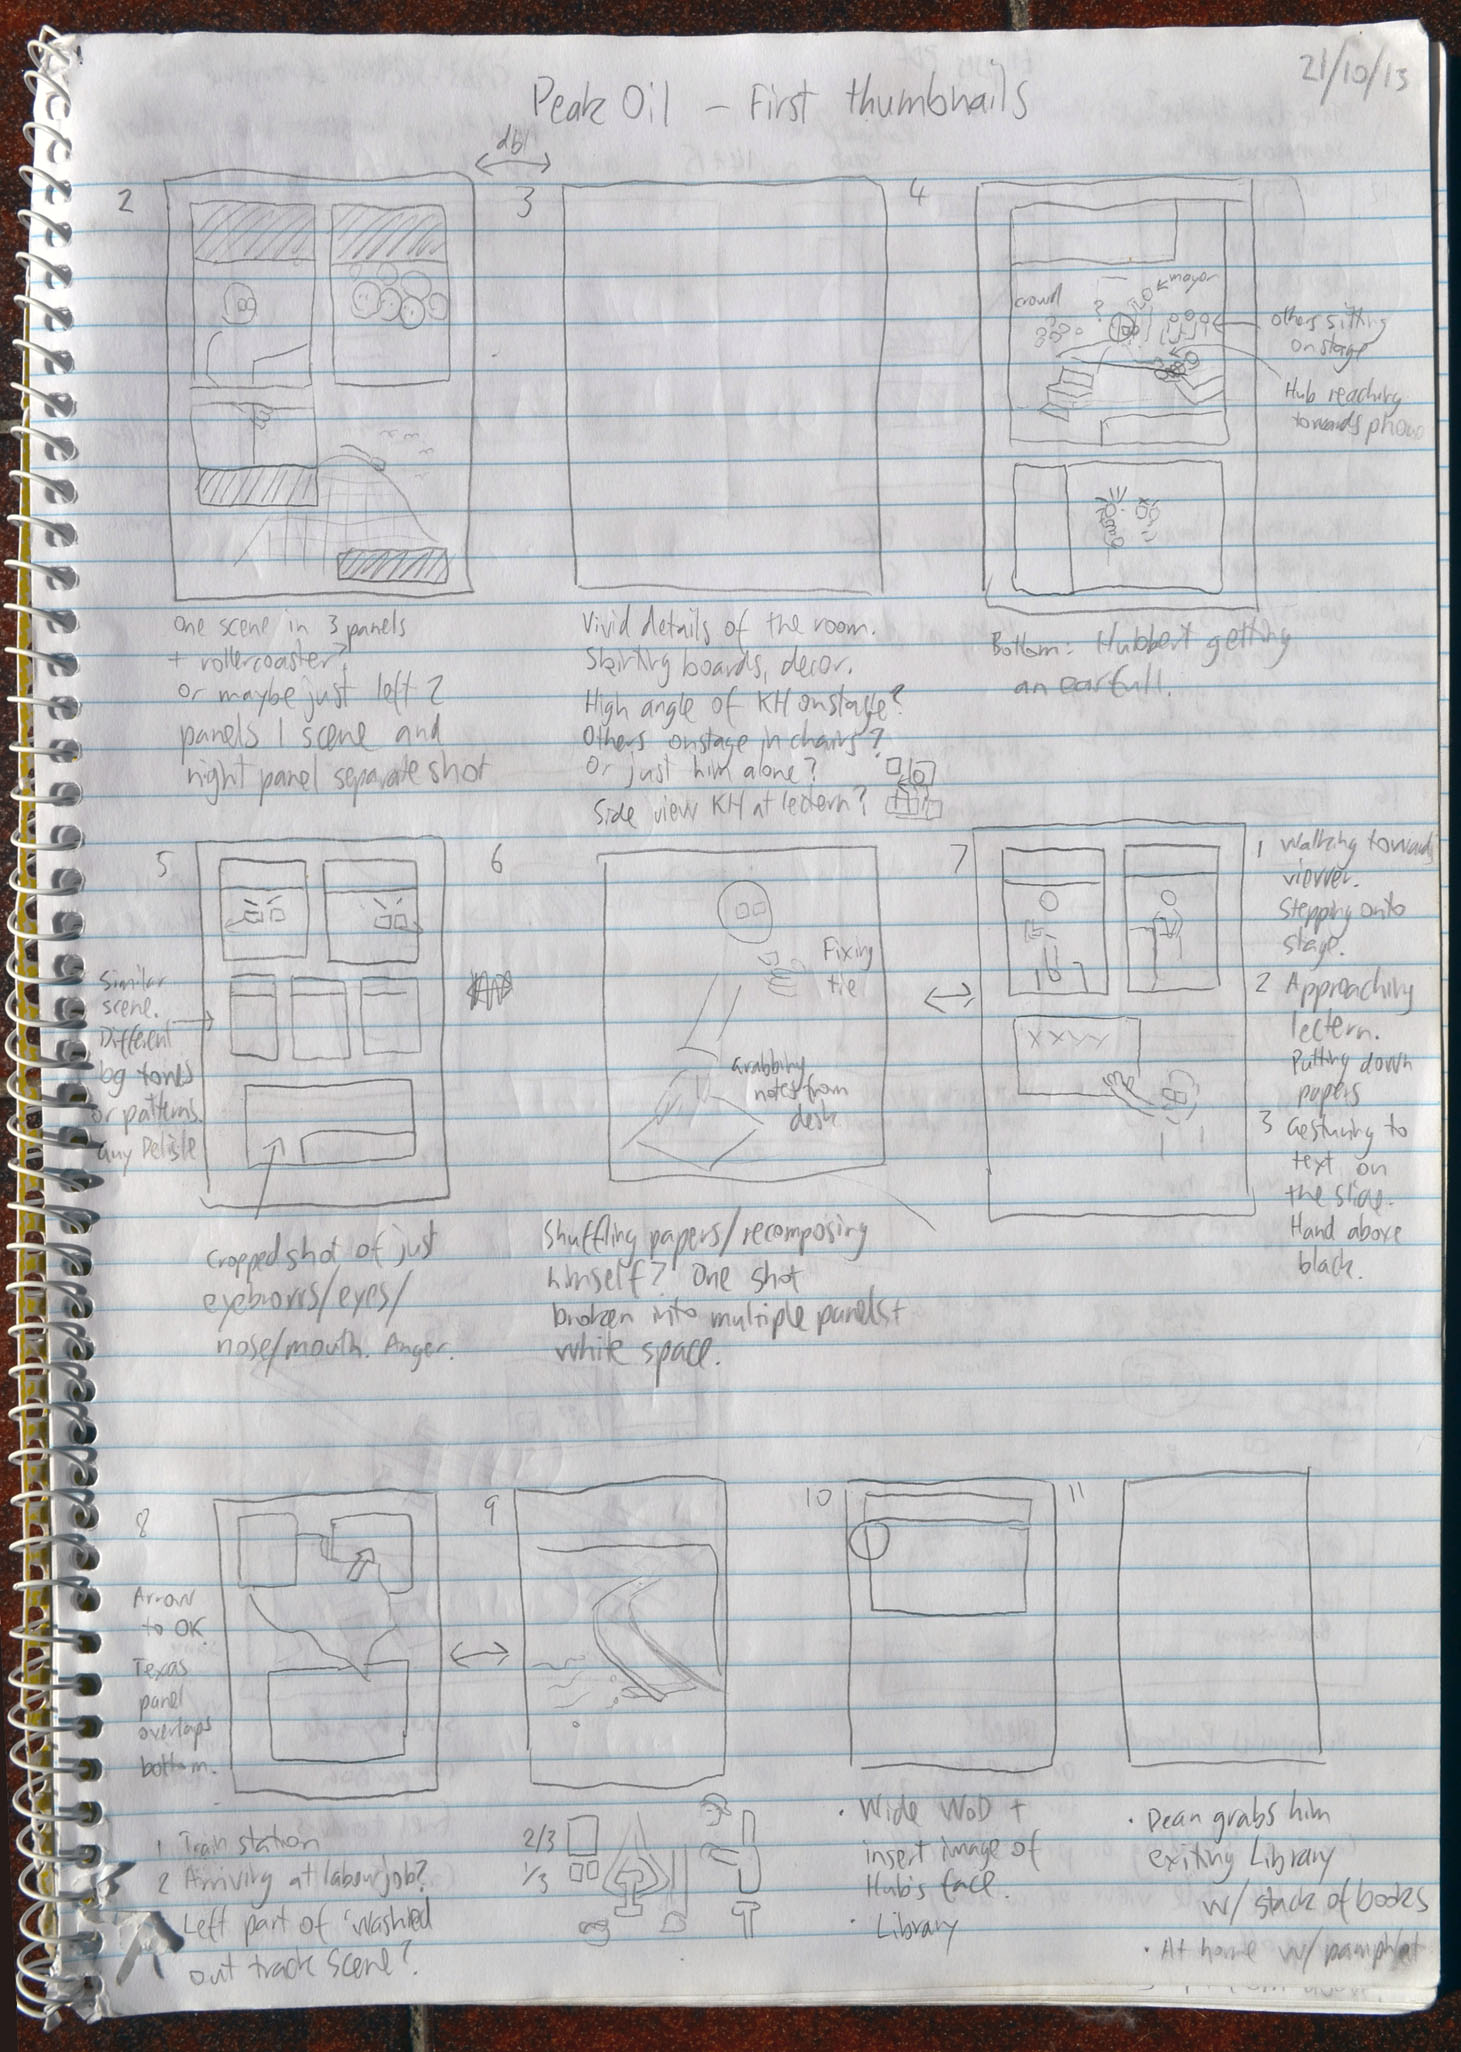 21/10/13
Peak Oil - First thumbnails
dbl
2
3
4
crowd
mayor
others sitting
on stage
Hub reaching
towards phone
one scene in 3 panels
+ rollercoaster?
or maybe just left 2
panels 1 scene and
right panel separate shot
Vivid details of the room.
Skirting boards, decor.
High angle of KH onstage?
Others onstage in chairs?
Or just him alone?
Side view KH at lectern?
Bottom: Hubbert getting
an earfull.
5
6
7
Similar
scene.
Different
bg tones
or patterns.
Guy Delisle
Fixing
tie
Grabbing
notes from
desk
1 Walking towards
viewer.
Stepping onto
stage.
2 Approaching
lectern.
Putting down
papers
3 Gesturing to
text on
the slide.
Hand above
black.
Cropped shot of just
eyebrows/eyes/
nose/mouth. Anger.
Shuffling papers/recomposing
himself? One shot
broken into multiple panels +
white space.
8
9
10
11
Arrow
to OK
Texas
panel
overlaps
bottom.
1 Train station
2 Arriving at labour job?
Left part of 'washed
out track scene'?
2/3
1/3
· Wide WoD +
insert image of
Hub's face.
· Library
· Dean grabs him
exiting Library
w/ stack of books
· At home w/ pamphlet